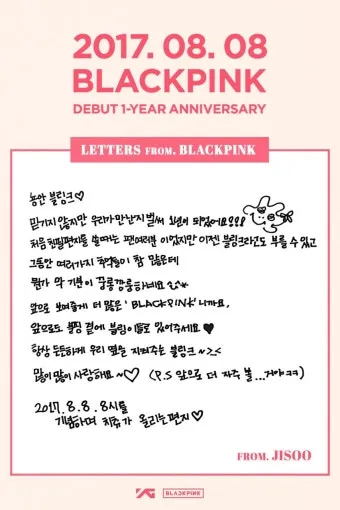 2017. 08. 08
BLACKPINK
DEBUT 1-YEAR ANNIVERSARY
LETTERS FROM. BLACKPINK
블링크♡
믿기지 않지만 우리가 만난지 벌써 1년이 되었어요!!!
처음 친필편지를 쓸때는 팬여러분 이었지만 이젠 블링크라고도 부를 수 있고
그동안 여러가지 추억들이 참 많은데
뭔가 막 기분이 꾸룽깡룽하네요
앞으로 보여줄게 더 많은 'BLACKPINK'니까요,
앞으로도 블핑 곁에 블링이들로 있어주세요♥
항상 든든하게 우리 옆을 지켜주는 블링크~>_<
많이많이 사랑하요~♡ (P.S 앞으로 더 자주 볼...거야ㅋㅋ)
2017.8.8. 8시를
기념하며 지쮸가 올리는편지♡
FROM. JISOO
YG BLACKPINK